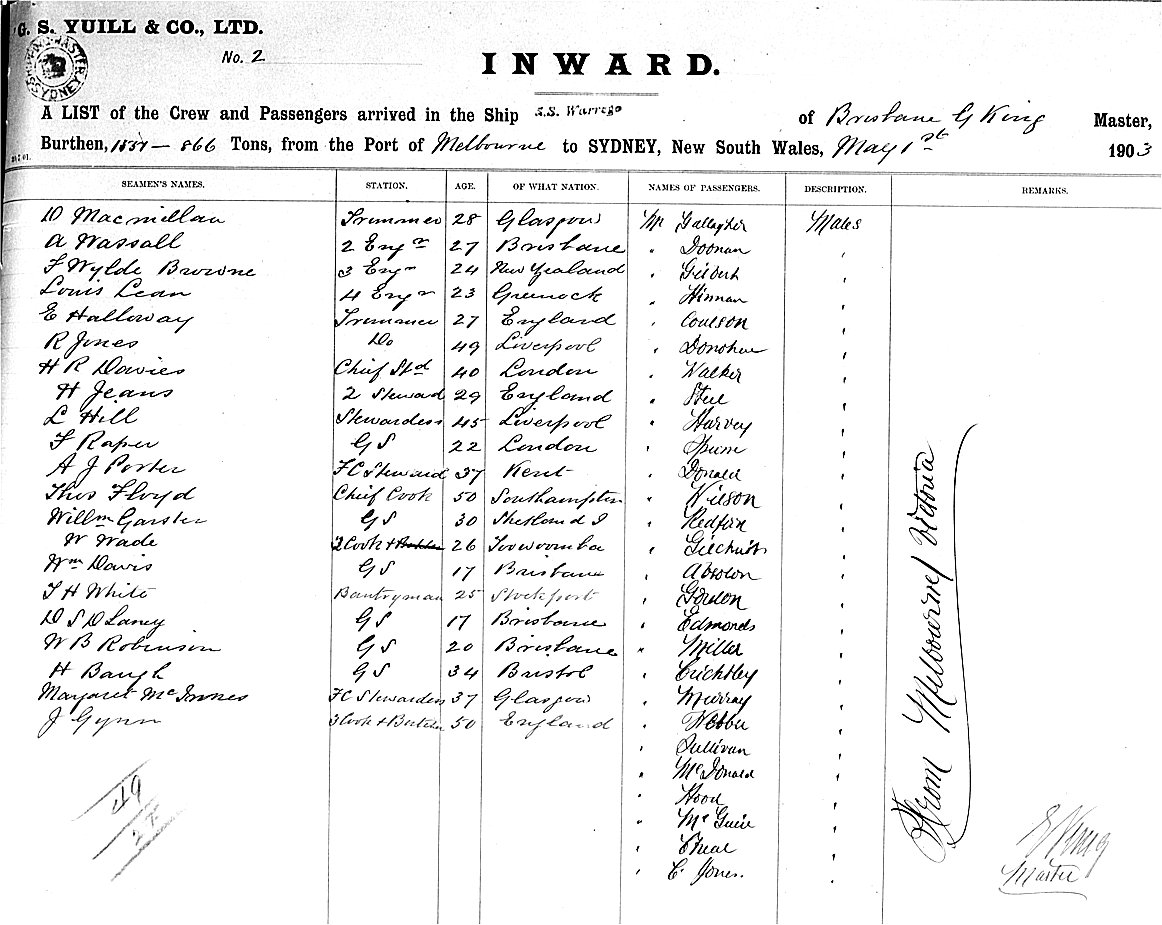 G. S. YUILL & CO., LTD.
SHIPPING MASTER SYDNEY
No. 2
INWARD.
A LIST of the Crew and Passengers arrived in the Ship S.S. Warrego of Brisbane G King Master,
Burthen, 866 Tons, from the Port of Melbourne to SYDNEY, New South Wales, May 1st 1903
SEAMEN'S NAMES. STATION. AGE. OF WHAT NATION. NAMES OF PASSENGERS. DESCRIPTION. REMARKS.
D Macmillan Trimmer 28 Glasgow Mr Gallagher Males
A Wassall 2 Engr 27 Brisbane " Doonan '
F Wylde Browne 3 Engr 24 New Zealand " Gilbert '
Louis Lean 4 Engr 23 Greenock " Hinman '
E Halloway Trimmer 27 England " Coulson '
R Jones Do 49 Liverpool " Donohue '
H R Davies Chief Std 40 London " Walker '
H Jeans 2 Steward 29 England " Steel '
L Hill Stewardess 45 Liverpool " Harvey '
F Raper G S 22 London " '
A J Porter FC Steward 37 Kent " Donald '
Thos Floyd Chief Cook 50 Southampton " Wilson '
Willm Garster G S 30 Shetland I " Redfern '
W Wade 2 Cook + Butcher 26 Toowoomba " Gilchrist '
Wm Davis G S 17 Brisbane " Absolon '
T H White Pantryman 25 Stockport " Gordon '
D S D Laney G S 17 Brisbane " Edmonds '
W B Robinson G S 20 Brisbane " Miller '
H Baugh G S 34 Bristol " Crichtley '
Margaret McInnes FC Stewardess 37 Glasgow " Murray '
J Gynn 3 Cook + Butcher 50 England " Webber '
" Sullivan '
" McDonald '
" Hood '
" McGuire '
" Theal '
" C Jones. '
From Melbourne Victoria
49
27
G King
Master